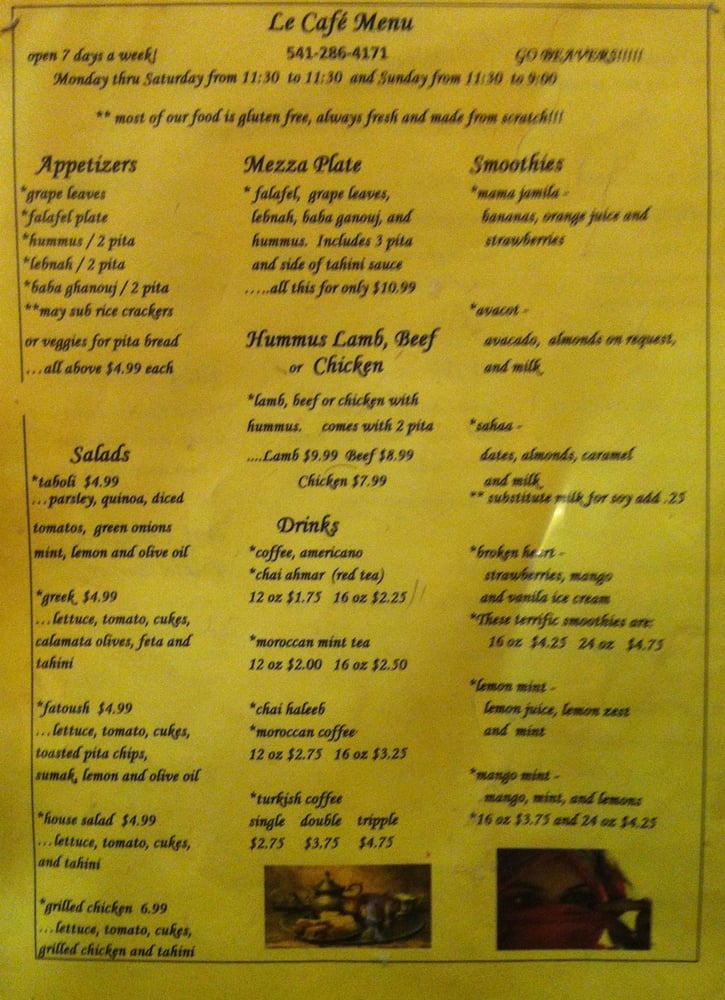 Le Café Menu
open 7 days a week!
541-286-4171
GO BEAVERS!!!!!
Monday thru Saturday from 11:30 to 11:30 and Sunday from 11:30 to 9:00
** most of our food is gluten free, always fresh and made from scratch!!!
Appetizers
*grape leaves
*falafel plate
*hummus / 2 pita
*lebnah / 2 pita
*baba ghanouj / 2 pita
**may sub rice crackers
or veggies for pita bread
...all above $4.99 each
Salads
*taboli $4.99
...parsley, quinoa, diced
tomatos, green onions
mint, lemon and olive oil
*greek $4.99
...lettuce, tomato, cukes,
calamata olives, feta and
tahini
*fatoush $4.99
...lettuce, tomato, cukes,
toasted pita chips,
sumak, lemon and olive oil
*house salad $4.99
...lettuce, tomato, cukes,
and tahini
*grilled chicken 6.99
...lettuce, tomato, cukes,
grilled chicken and tahini
Mezza Plate
* falafel, grape leaves,
lebnah, baba ganouj, and
hummus. Includes 3 pita
and side of tahini sauce
.....all this for only $10.99
Hummus Lamb, Beef
or Chicken
*lamb, beef or chicken with
hummus. comes with 2 pita
....Lamb $9.99 Beef $8.99
Chicken $7.99
Drinks
*coffee, americano
*chai ahmar (red tea)
12 oz $1.75 16 oz $2.25
*moroccan mint tea
12 oz $2.00 16 oz $2.50
*chai haleeb
*moroccan coffee
12 oz $2.75 16 oz $3.25
*turkish coffee
single double tripple
$2.75 $3.75 $4.75
Smoothies
*mama jamila -
bananas, orange juice and
strawberries
*avacot -
avocado, almonds on request,
and milk
*sahaa -
dates, almonds, caramel
and milk
** substitute milk for soy add .25
*broken heart -
strawberries, mango
and vanila ice cream
*These terrific smoothies are:
16 oz $4.25 24 oz $4.75
*lemon mint -
lemon juice, lemon zest
and mint
*mango mint -
mango, mint, and lemons
*16 oz $3.75 and 24 oz $4.25